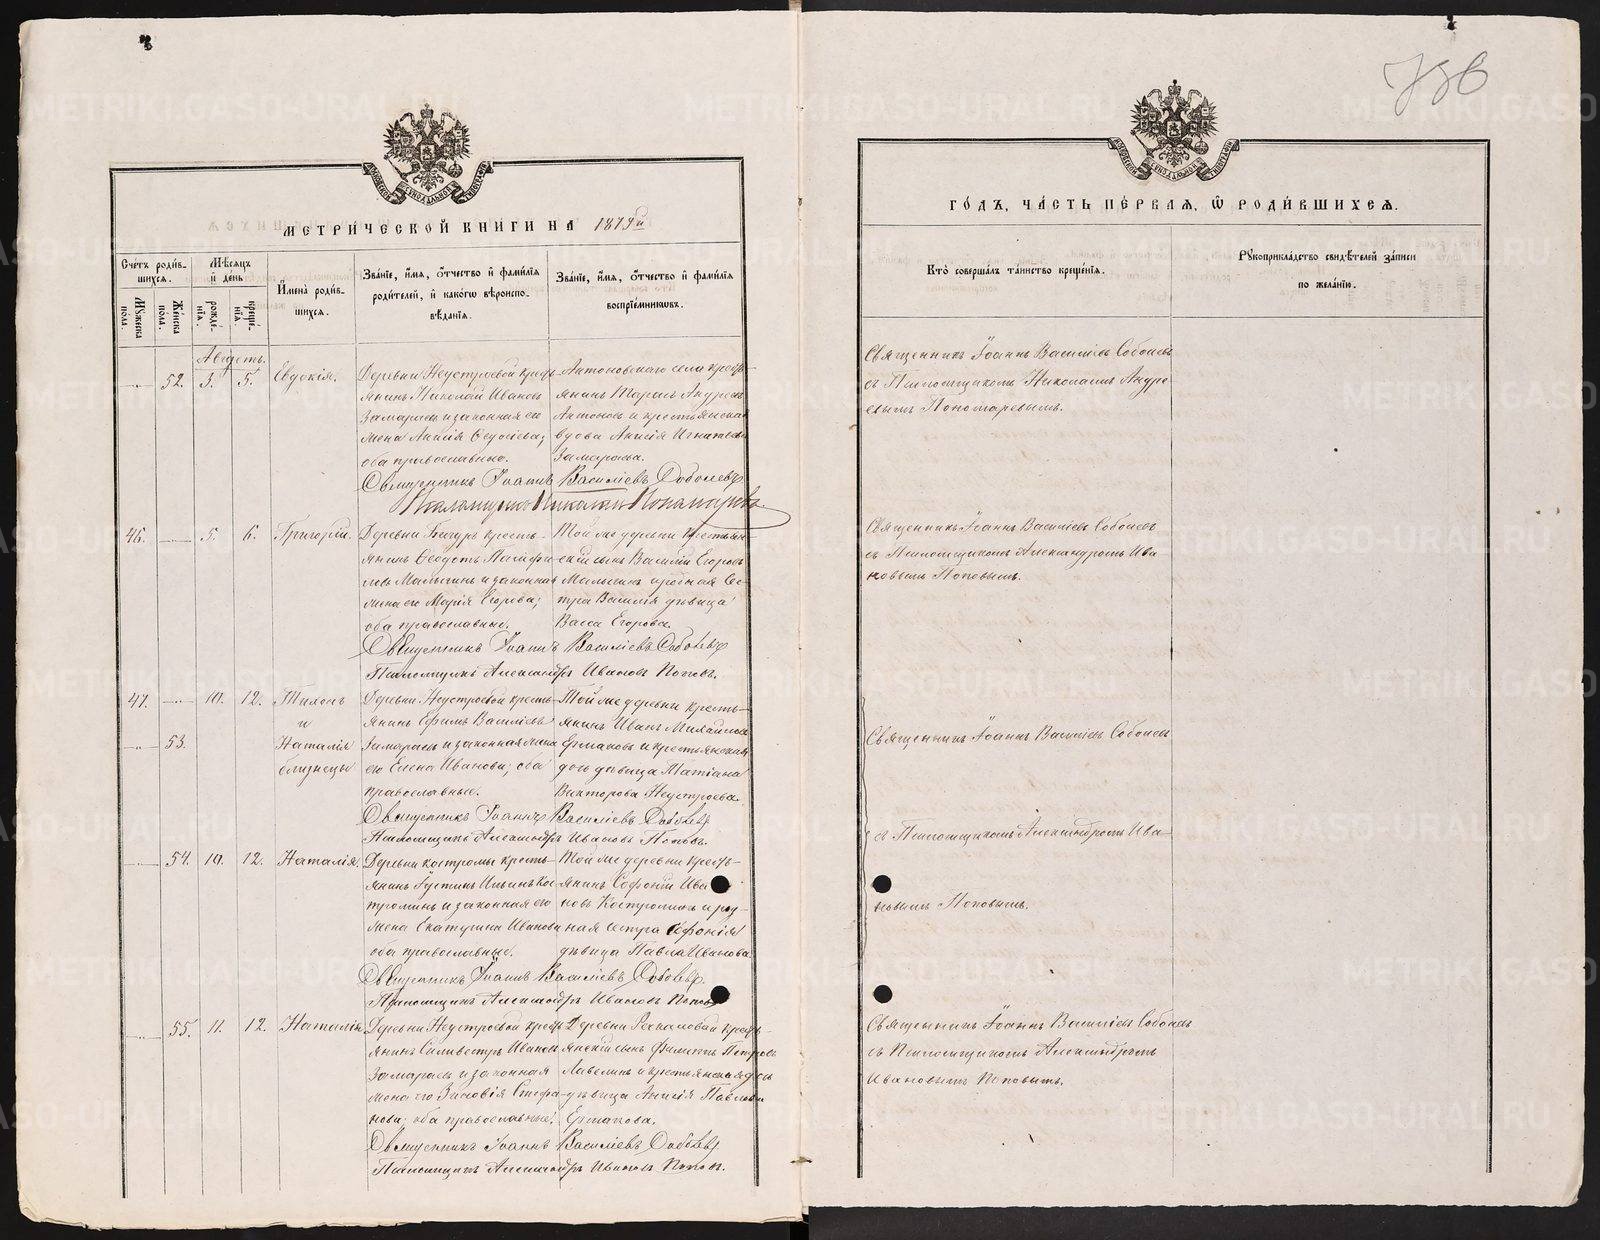 METRIKI.GASO-URAL.RU
МЕТРИ́ЧЕСКОЙ КНИ́ГИ НА 1873й
Сче́тъ роди́в-
шихсѧ.
Мѣ́сѧцъ
и҆ де́нь
И҆мена̀ роди́в-
шихсѧ.
Зва́нїе, и҆́мѧ, ѻ҆́тчество и҆ фами́лїѧ
роди́телей, и҆ како́гѡ вѣроиспо-
вѣ́данїѧ.
Зва́нїе, и҆́мѧ, ѻ҆́тчество и҆ фами́лїѧ
воспрїе́мникѡвъ.
Мꙋ́жеска
по́ла.
Же́нска
по́ла.
рожде́-
нїѧ.
креще́-
нїѧ.
Августъ.
52. 3. 5. Евдокія.
Деревни Неустроевой кресть-
янинъ Николай Ивановъ
Замараевъ и законная его
жена Анисія Ѳедосіева;
оба православные.
Антоновскаго села кресть-
янинъ Тарасъ Андреевъ
Антоновъ и крестьянская
вдова Анисія Игнатьева
Замараева.
Священникъ Іоаннъ Василіевъ Соболевъ
Псаломщикъ Николай Пономаревъ
46. 5. 6. Григорій.
Деревни Бигуръ кресть-
янинъ Ѳедотъ
Малыгинъ и законная
жена его Марія Егорова;
оба православные.
Той же деревни крестьян-
скій сынъ Василій Егоровъ
Малыгинъ и родная се-
стра Василія дѣвица
Васса Егорова.
Священникъ Іоаннъ Василіевъ Соболевъ
Псаломщикъ Александръ Ивановъ Поповъ.
47. 10. 12. Тихонъ
и
53. Наталія
близнецы
Деревни Неустроевой кресть-
янинъ Ефимъ Василіевъ
Замараевъ и законная жена
его Елена Иванова; оба
православные.
Той же деревни кресть-
янинъ Иванъ Михайловъ
Ермаковъ и крестьянская
дочь дѣвица Татіана
Викторова Неустроева.
Священникъ Іоаннъ Василіевъ Соболевъ
Псаломщикъ Александръ Ивановъ Поповъ.
54. 10. 12. Наталія.
Деревни Костромы кресть-
янинъ Іустинъ Ильинъ Кос-
троминъ и законная его
жена Екатерина Иванова
оба православные.
Той же деревни кресть-
янинъ Софоній Ива
новъ Костроминъ и род-
ная сестра Софонія
дѣвица Павла Иванова.
Священникъ Іоаннъ Василіевъ Соболевъ.
Псаломщикъ Александръ Ивановъ Поповъ
55. 11. 12. Наталія.
Деревни Неустроевой кресть-
янинъ Силивестръ Ивановъ
Замараевъ и законная
жена его Зиновія Стефа-
нова, оба православные.
Деревни кресть-
янскій сынъ Филиппъ Петровъ
и крестьянская дочь
дѣвица Анисія Павлова
Ермакова.
Священникъ Іоаннъ Василіевъ Соболевъ.
Псаломщикъ Александръ Ивановъ Поповъ.
ГО́ДЪ, ЧА́СТЬ ПЕ́РВАѦ, Ѡ҆ РОДИ́ВШИХСѦ.
Кто̀ соверша́лъ та́инство креще́нїѧ.
Рꙋкоприкла́дство свидѣ́телей за́писи
по жела́нїю.
Священникъ Іоаннъ Василіевъ Соболевъ
съ Псаломщикомъ Николаемъ Андре-
евымъ Пономаревымъ.
Священникъ Іоаннъ Василіевъ Соболевъ
съ Псаломщикомъ Александромъ Ива
новымъ Поповымъ.
Священникъ Іоаннъ Василіевъ Соболевъ
съ Псаломщикомъ Александромъ Ива-
новымъ Поповымъ.
Священникъ Іоаннъ Василіевъ Соболевъ
съ Псаломщикомъ Александромъ
Ивановымъ Поповымъ.